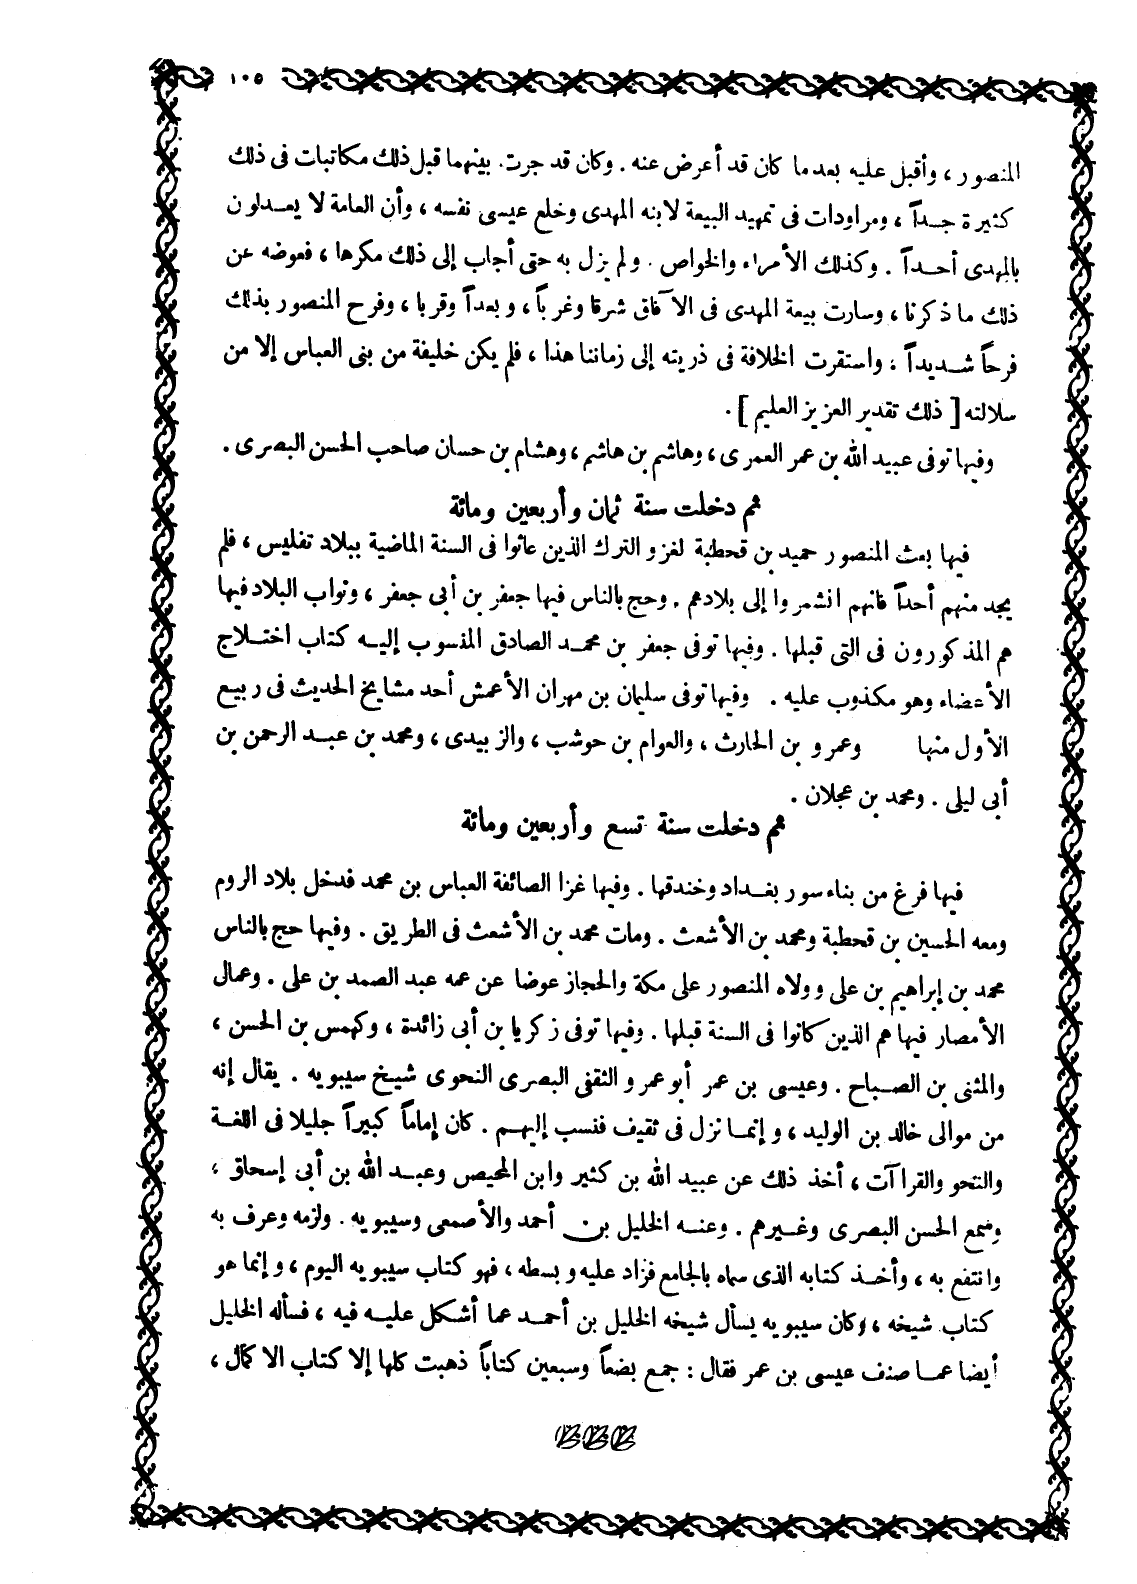 ١٠٥
المنصور، وأقبل عليه بعد ما كان قد أعرض عنه. وكان قد جرت. بينهما قبل ذلك مكاتبات فى ذلك
كثيرة جداً، ومراودات فى تمهيد البيعة لابنه المهدى وخلع عيسى نفسه، وأن العامة لا يعدلون
بالمهدى أحداً. وكذلك الأمراء والخواص. ولم يزل به حتى أجاب إلى ذلك مكرها، فعوضه عن
ذلك ما ذكرنا، وسارت بيعة المهدى فى الآفاق شرقا وغرباً، وبعداً وقربا، وفرح المنصور بذلك
فرحاً شديداً؛ واستقرت الخلافة فى ذريته إلى زماننا هذا، فلم يكن خليفة من بنى العباس إلا من
سلالته [ ذلك تقدير العزيز العليم ].
وفيها توفى عبيد الله بن عمر العمرى، وهاشم بن هاشم، وهشام بن حسان صاحب الحسن البصرى.
ثم دخلت سنة ثمان وأربعين ومائة
فيها بعث المنصور حميد بن قحطبة لغزو الترك الذين عاثوا فى السنة الماضية ببلاد تفليس، فلم
يجد منهم أحداً فانهم انشمروا إلى بلادهم. وحج بالناس فيها جعفر بن أبى جعفر، ونواب البلاد فيها
هم المذكورون فى التى قبلها. وفيها توفى جعفر بن محمد الصادق المنسوب إليه كتاب اختلاج
الأعضاء وهو مكذوب عليه. وفيها توفى سليمان بن مهران الأعمش أحد مشايخ الحديث فى ربيع
الأول منها وعمرو بن الحارث، والعوام بن حوشب، والزبيدى، ومحمد بن عبد الرحمن بن
أبى ليلى. ومحمد بن عجلان.
ثم دخلت سنة تسع وأربعين ومائة
فيها فرغ من بناء سور بغداد وخندقها. وفيها غزا الصائفة العباس بن محمد فدخل بلاد الروم
ومعه الحسين بن قحطبة ومحمد بن الأشعث. ومات محمد بن الأشعث فى الطريق. وفيها حج بالناس
محمد بن إبراهيم بن على وولاه المنصور على مكة والحجاز عوضا عن عمه عبد الصمد بن على. وعمال
الأمصار فيها هم الذين كانوا فى السنة قبلها. وفيها توفى زكريا بن أبى زائدة، وكهمس بن الحسن،
والمثنى بن الصباح. وعيسى بن عمر أبو عمرو الثقفى البصرى النحوى شيخ سيبويه. يقال إنه
من موالى خالد بن الوليد، وإنما نزل فى ثقيف فنسب إليهم. كان إماماً كبيراً جليلا فى اللغة
والنحو والقراآت، أخذ ذلك عن عبيد الله بن كثير وابن المحيص وعبد الله بن أبى إسحاق،
وسمع الحسن البصرى وغيرهم. وعنه الخليل بن أحمد والأصمعى وسيبويه. ولزمه وعرف به
وانتفع به، وأخذ كتابه الذى سماه بالجامع فزاد عليه وبسطه، فهو كتاب سيبويه اليوم، وإنما هو
كتاب شيخه، وكان سيبويه يسأل شيخه الخليل بن أحمد عما أشكل عليه فيه، فسأله الخليل
أيضا عما صنف عيسى بن عمر فقال: جمع بضعاً وسبعين كتاباً ذهبت كلها إلا كتاب الاكمال،